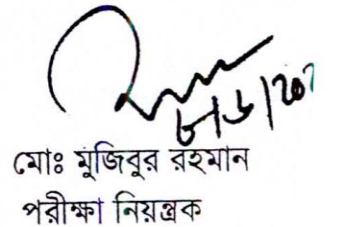 মোঃ মুজিবুর রহমান
পরীক্ষা নিয়ন্ত্রক